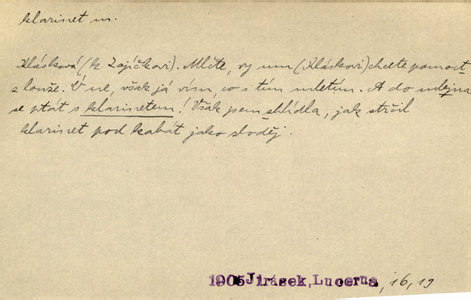 klarinet m.
Klásková (k Zajíčkovi). Mlčte, vy mu (Kláskovi) chcete pomoct
z louže. V
ne, však já vím, co s tím mletím. A do mlejna
se ptát s klarinetem! Však jsem shlídla, jak strčil
klarinet pod kabát jako zloděj.
1905 Jirásek, Lucerna, 16, 19